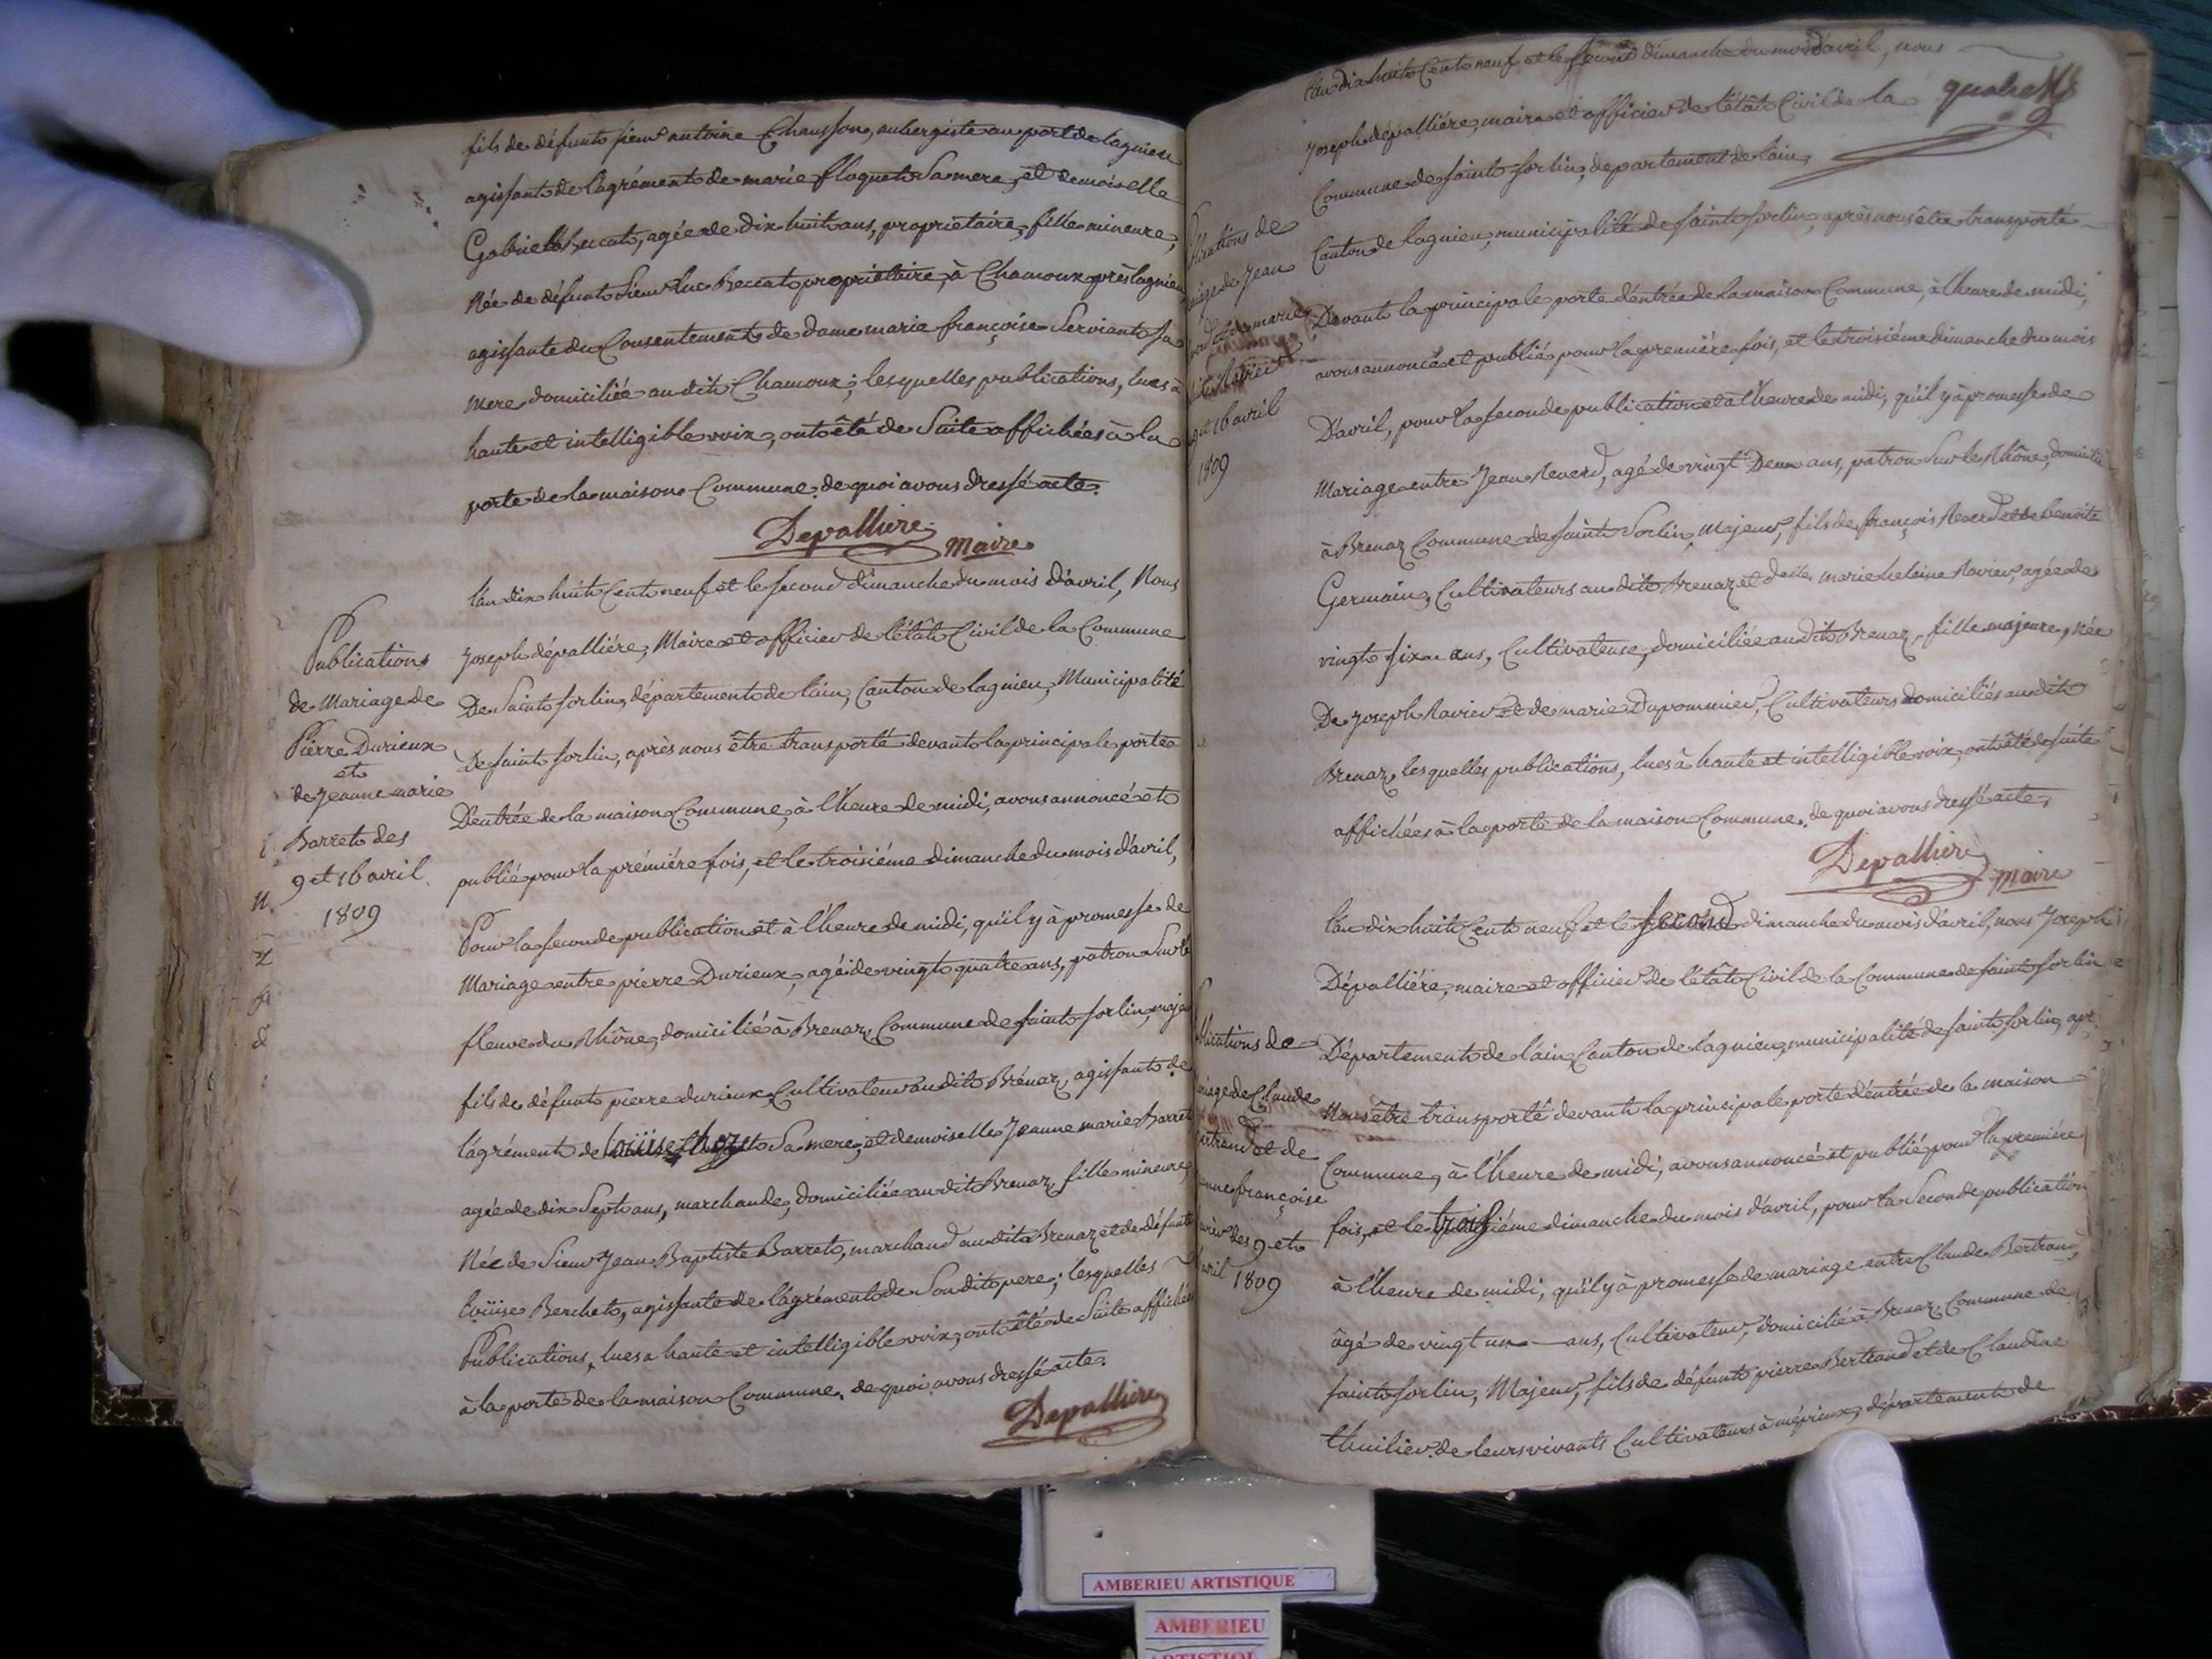 fils de défunt sieur antoine Chausson, aubergiste au port de lagnieu
agissant de l'agrément de marie floquet Sa mere, et demoiselle
Gabrielle Beccat, agée de dix huit ans, propriétaire, fille mineure,
Née de défunt Sieur Luc Beccat propriétaire, à Chamoux près lagnieu
agissante du Consentement de dame marie françoise Serviant sa
mere domiciliée au dit Chamoux; lesquelles publications, lues à
haute et intelligible voix, ont êté de Suite affichées à la
porte de la maison Commune. de quoi avons dressé acte.
Depalliere
Maire
Publications
de Mariage de
Pierre Durieux
et
de Jeanne marie
Barret des
9 et 16 avril
1809
l'an dix huit Cent neuf et le second dimanche du mois d'avril, Nous
Joseph dépalliére, Maire et officier de l'étât Civil de la Commune
De Saint sorlin, département de l'ain, Canton de lagnieu, Municipalité
De saint sorlin, après nous être transporté devant la principale porte
D'entrée de la maison Commune, à l'heure de midi, avons annoncé et
publié pour la prémiére fois, et le troisiéme dimanche du mois d'avril,
Pour la seconde publication et à l'heure de midi, qu'il y à promesse de
Mariage entre pierre Durieux, agé de vingt quatre ans, patron Sur le
fleuve du Rhône, domicilié à Brenaz Commune de saint sorlin, majeur
fils de défunt pierre durieux Cultivateur au dit Brénaz, agissant de
l'agrément de Louise Sa mere, et demoiselle Jeanne marie Barret
agée de dix Sept ans, marchande, domiciliée au dit Brenaz fille mineure,
Née de Sieur Jean Baptiste Barret, marchand au dit Brenaz et de défunte
Loüise Berchet, agissante de l'agrément de Son dit pere; lesquelles
Publications, lues a haute et intelligible voix, ont êté de Suite affichées
à la porte de la maison Commune. de quoi avons dressé acte.
Depalliere
l'an dix huit Cent neuf et le second dimanche du mois d'avril, nous
Joseph dépalliére, maire et officier de l'étât Civil de la
Commune de saint sorlin, departement de l'ain,
Canton de lagnieu, municipalité de saint sorlin, après nous être transporté
Devant la principale porte d'entrée de la maison Commune, à l'heure de midi,
avons annoncé et publié pour la premiére fois, et le troisiéme dimanche du mois
D'avril, pour la seconde publication et a l'heure de midi, qu'il y à promesse de
Mariage entre Jean Reverd, agé de vingt Deux ans, patron Sur le Rhône, domicilié
à Brenaz Commune de saint Sorlin, Majeur, fils de françois Reverd et de benoite
Germain, Cultivateurs au dit Brenaz et delle marie heleine Ravier, agée de
vingt six ans, Cultivateuse, domiciliée au dit Brenaz, fille majeure, Née
De Joseph Ravier et de marie Dupommier, Cultivateurs domiciliés au dit
Brenaz lesquelles publications, lues à haute et intelligible voix, ont êté de suite
affichées à la porte de la maison Commune. de quoi avons dressé acte.
Depalliere
Maire
de Jean
marie
et 16 avril
1809
l'an dix huit Cent neuf et le second dimanche du mois d'avril, nous Joseph
Dépalliére, maire et officier de l'étât Civil de la Commune de saint sorlin
Département de l'ain, Canton de lagnieu, municipalité de saint sorlin, apr
Nous être transporté devant la principale porte d'entrée de la maison
Commune, à l'heure de midi, avons annoncé et publié pour la premiére
fois, et le troisiéme dimanche du mois d'avril, pour la Seconde publication
à l'heure de midi, qu'il y à promesse de mariage entre Claude Bertrand,
âgé de vingt un ans, Cultivateur, domicilié à Brenaz Commune de
saint sorlin, Majeur, fils de défunt pierre Bertrand et de Claudine
thuilier de leurs vivants Cultivateurs à mépieux, département de
de Claude
et de
françoise
des 9 et
1809
AMBERIEU ARTISTIQUE
AMBERIEU
ARTISTIQUE